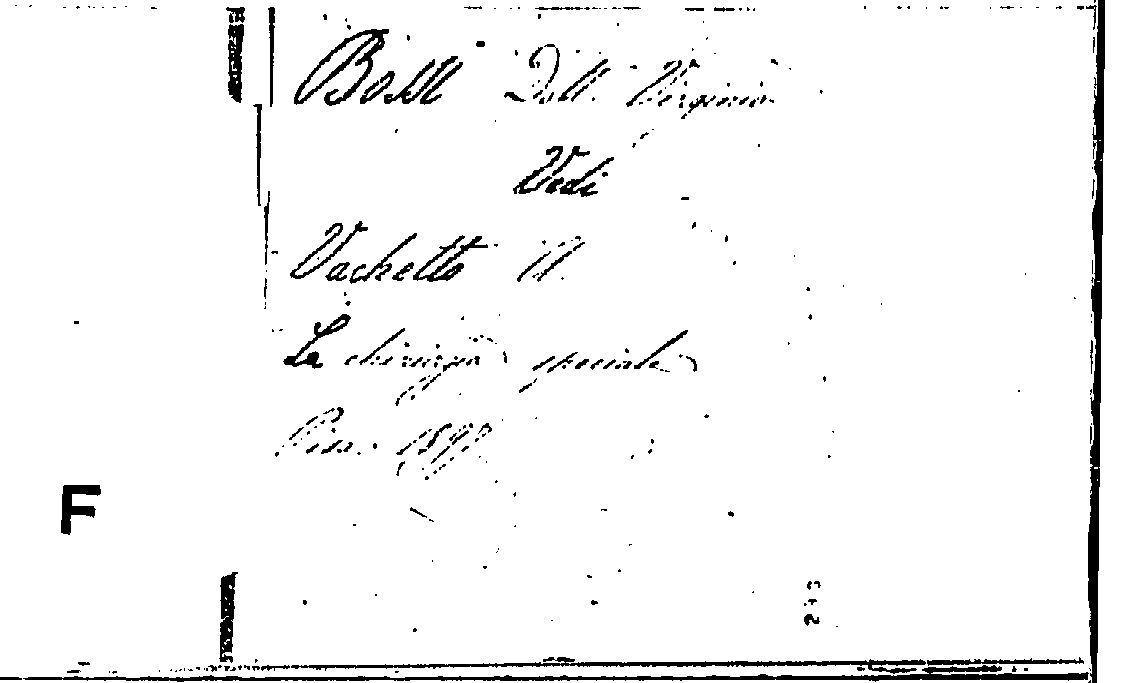 Bossi Dott. Virginio
Vedi
Vachetta A.
La chirurgia speciale
Pisa. 1899
F
293